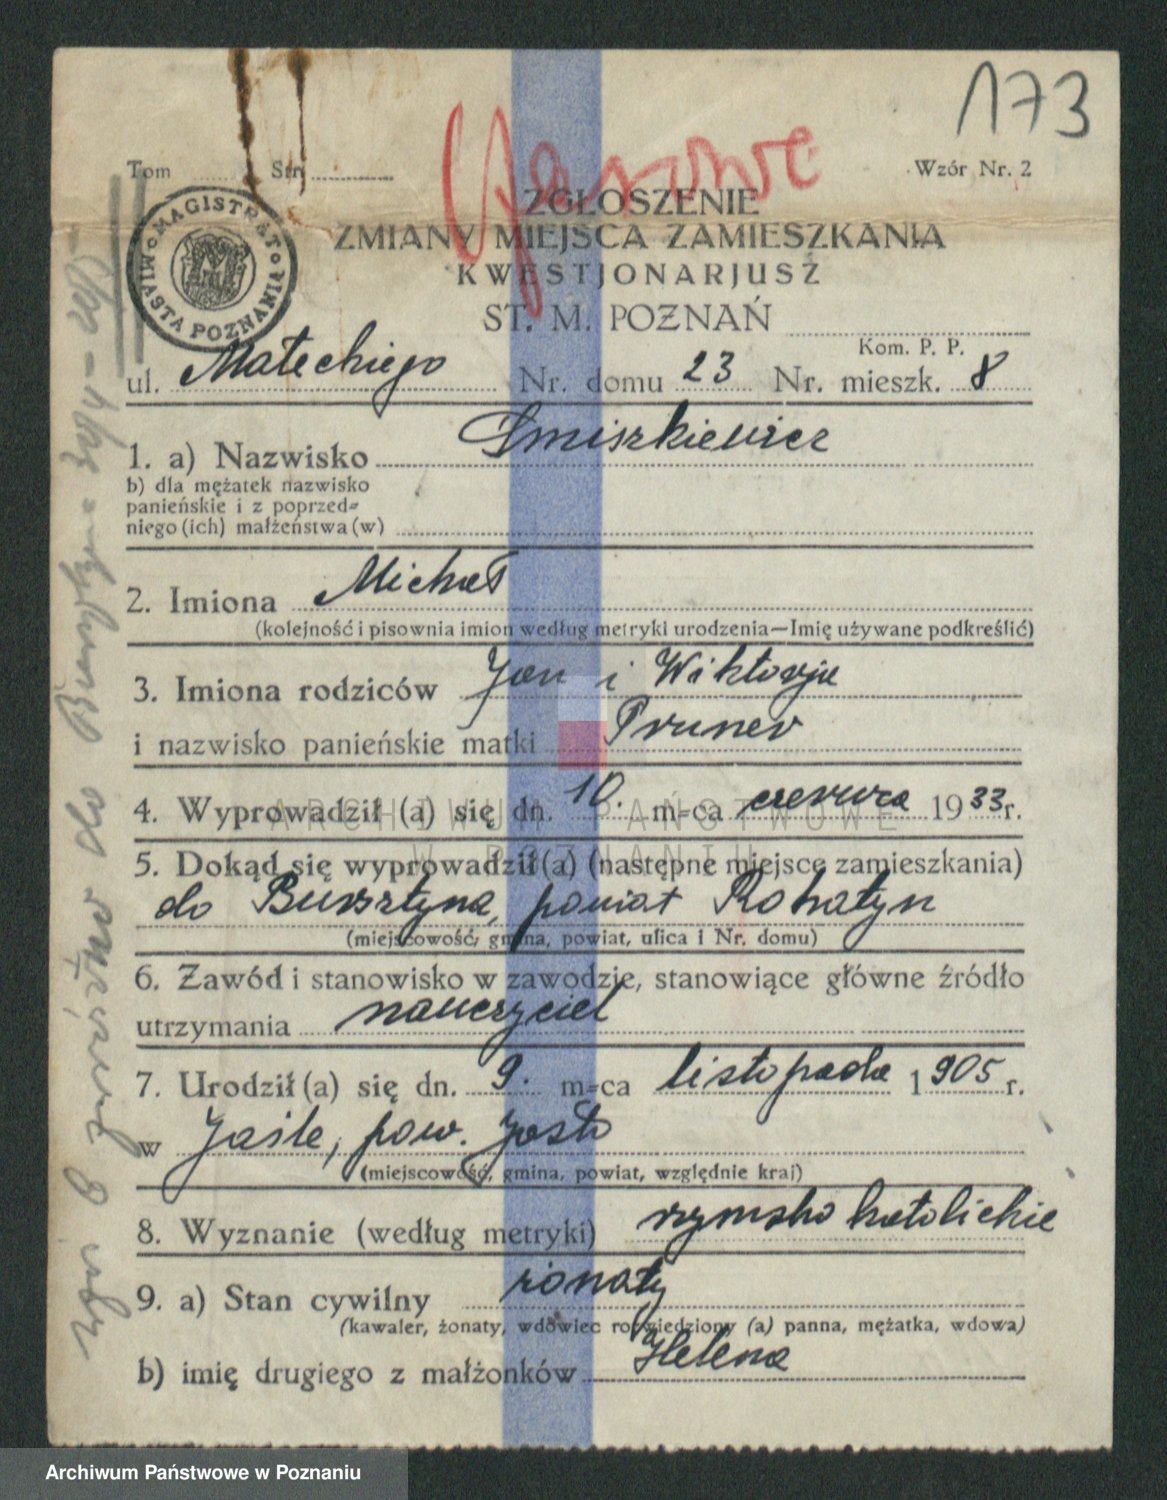 173
Tom ........ Str. ........
Wzór Nr. 2
MAGISTRAT MIASTA POZNANIA
ZGŁOSZENIE
ZMIANY MIEJSCA ZAMIESZKANIA
KWESTJONARJUSZ
ST. M. POZNAŃ
Kom. P. P.
ul. Małeckiego Nr. domu 23 Nr. mieszk. 8
1. a) Nazwisko Śmiszkiewicz
b) dla mężatek nazwisko
panieńskie i z poprzed-
niego (ich) małżeństwa (w)
2. Imiona Michał
(kolejność i pisownia imion według metryki urodzenia—Imię używane podkreślić)
3. Imiona rodziców Jan i Wiktorja
i nazwisko panieńskie matki Pruner
4. Wyprowadził (a) się dn. 10. m-ca czerwca 1933 r.
ARCHIWUM PAŃSTWOWE
W POZNANIU
5. Dokąd się wyprowadził (a) (następne miejsce zamieszkania)
do Bursztyna, powiat Rohatyn
(miejscowość, gmina, powiat, ulica i Nr. domu)
6. Zawód i stanowisko w zawodzie, stanowiące główne źródło
utrzymania nauczyciel
7. Urodził (a) się dn. 9. m-ca listopada 1905 r.
w Jaśle, pow. Jasło
(miejscowość, gmina, powiat, względnie kraj)
8. Wyznanie (według metryki) rzymsko katolickie
9. a) Stan cywilny żonaty
(kawaler, żonaty, wdowiec rozwiedziony (a) panna, mężatka, wdowa)
b) imię drugiego z małżonków Helena
Archiwum Państwowe w Poznaniu